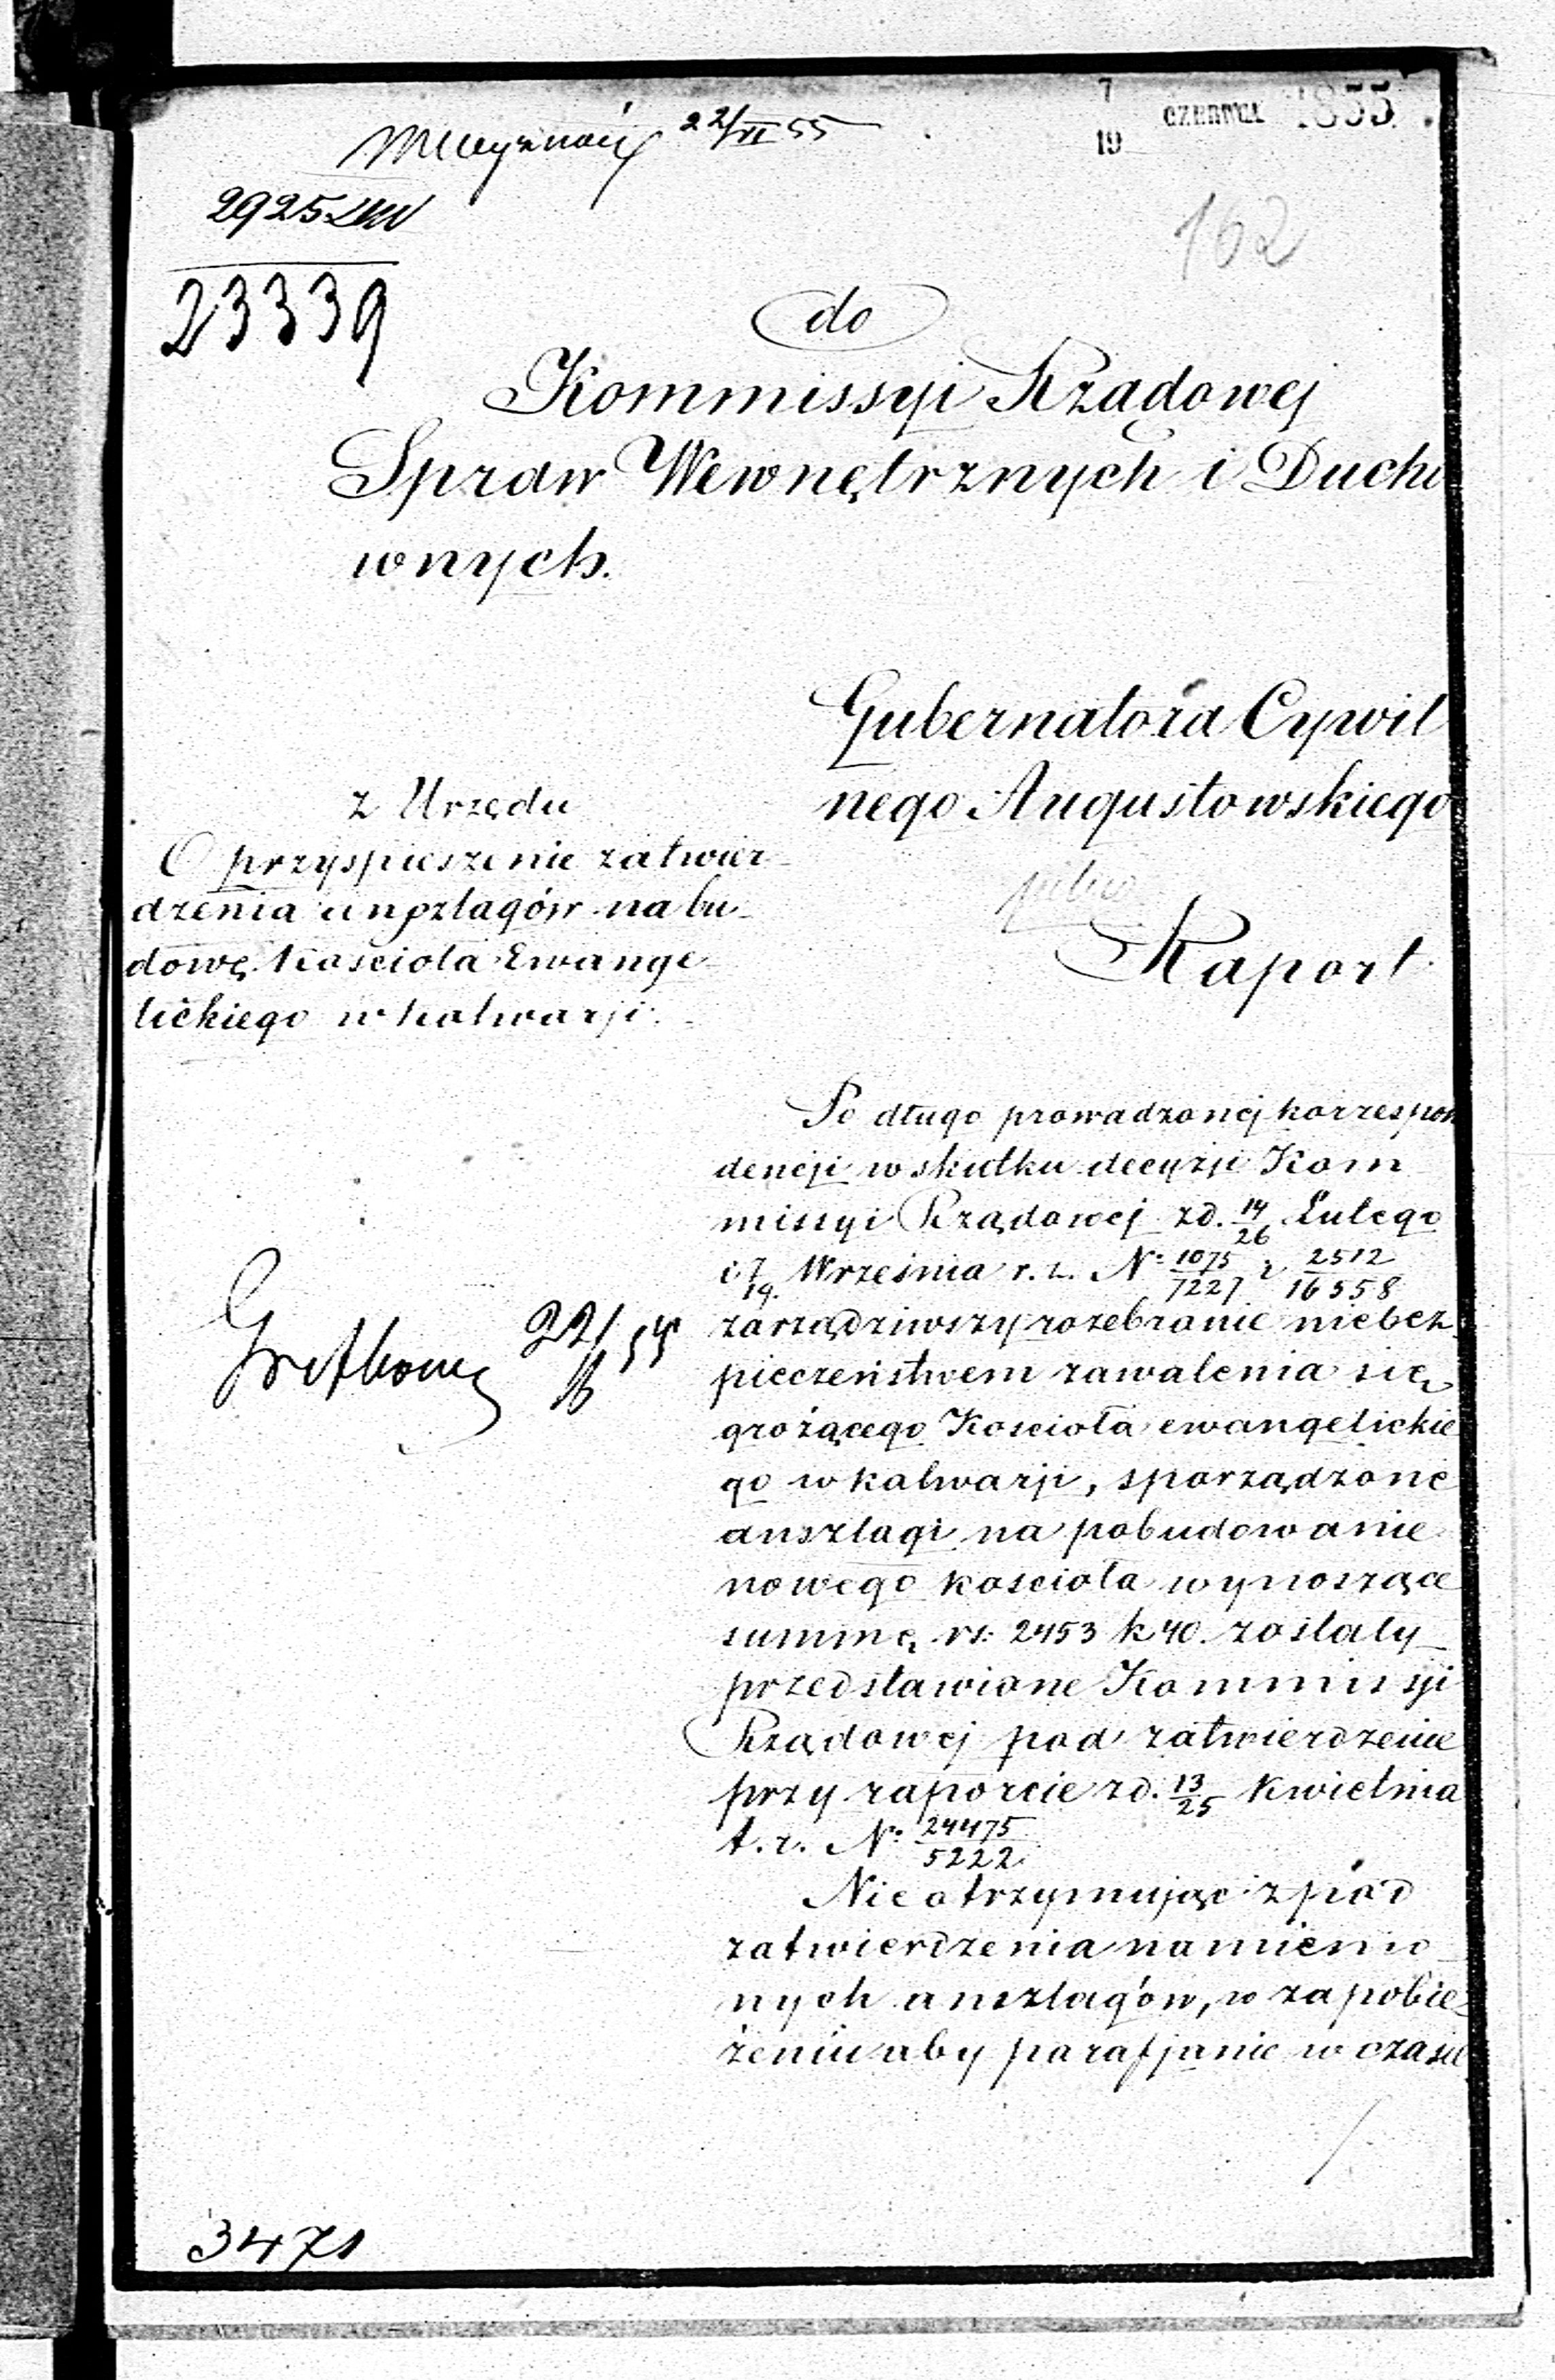 22/VI 55
7/19 czerwca 1855.
2925
23339
162
do
Kommissyi Rządowej
Spraw Wewnętrznych i Ducho
wnych.
Gubernatora Cywil
nego Augustowskiego
pilno
Raport
z Urzędu
O przyspieszenie zatwier-
dzenia anszlagów na bu-
dowę Kościoła Ewange-
lickiego w Kalwarji.
Po długo prowadzonej korrespon
dencji w skutku decyzji Kom
missyi Rządowej z d. 14/26 Lutego
i 7/19 Września r. z. No 1075/7227 i 2512/16558
zarządziwszy rozebranie niebez-
pieczeństwem zawalenia się
grożącego Kościoła ewangelickie
go w Kalwarji, sporządzone
anszlagi na pobudowanie
nowego kościoła wynoszące
summę rs: 2453 k 40. zostały
przedstawione Kommissji
Rządowej pod zatwierdzenie
przy raporcie z d. 13/25 Kwietnia
t. r. No 24475/5222.
Nie otrzymując z pod
zatwierdzenia namienio-
nych anszlagów, w zapobie-
żeniu aby parafjanie w czasie
22/6 55
3471